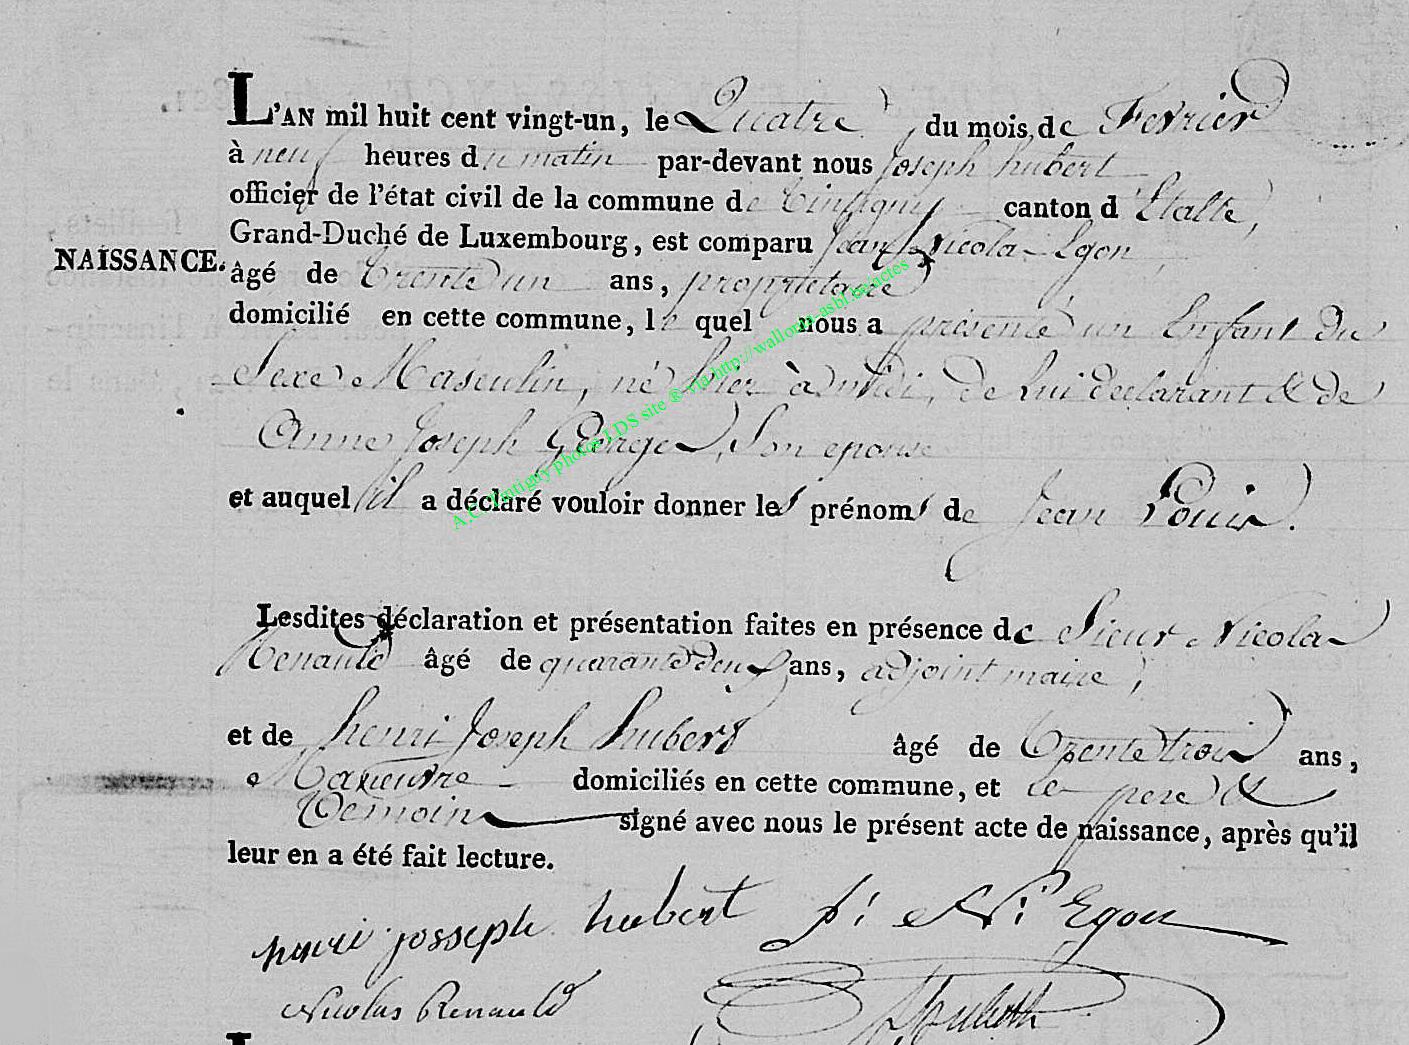 L'AN mil huit cent vingt-un, le Quatre du mois de Fevrier
à neuf heures du matin par-devant nous Joseph hubert
officier de l'état civil de la commune de Tintigny canton d'Etalle,
Grand-Duché de Luxembourg, est comparu Jean Nicolas Egon
NAISSANCE.
âgé de trente un ans, propriétaire
domicilié en cette commune, le quel nous a présenté un Enfant du
Sexe Masculin, né hier à midi, de lui déclarant & de
Anne Joseph George, Son epouse
et auquel il a déclaré vouloir donner les prénoms de Jean Louis.
Lesdites déclaration et présentation faites en présence de Sieur Nicolas
Renauld âgé de quarante deux ans, adjoint maire,
et de henri Joseph hubert âgé de trente trois ans,
Maneuvre domiciliés en cette commune, et le pere &
Temoins signé avec nous le présent acte de naissance, après qu'il
leur en a été fait lecture.
henri josseph hubert J: N: Egon
Nicolas Renauld
A.C. Tintigny photos LDS site ® via http://wallonia-asbl.be/actes